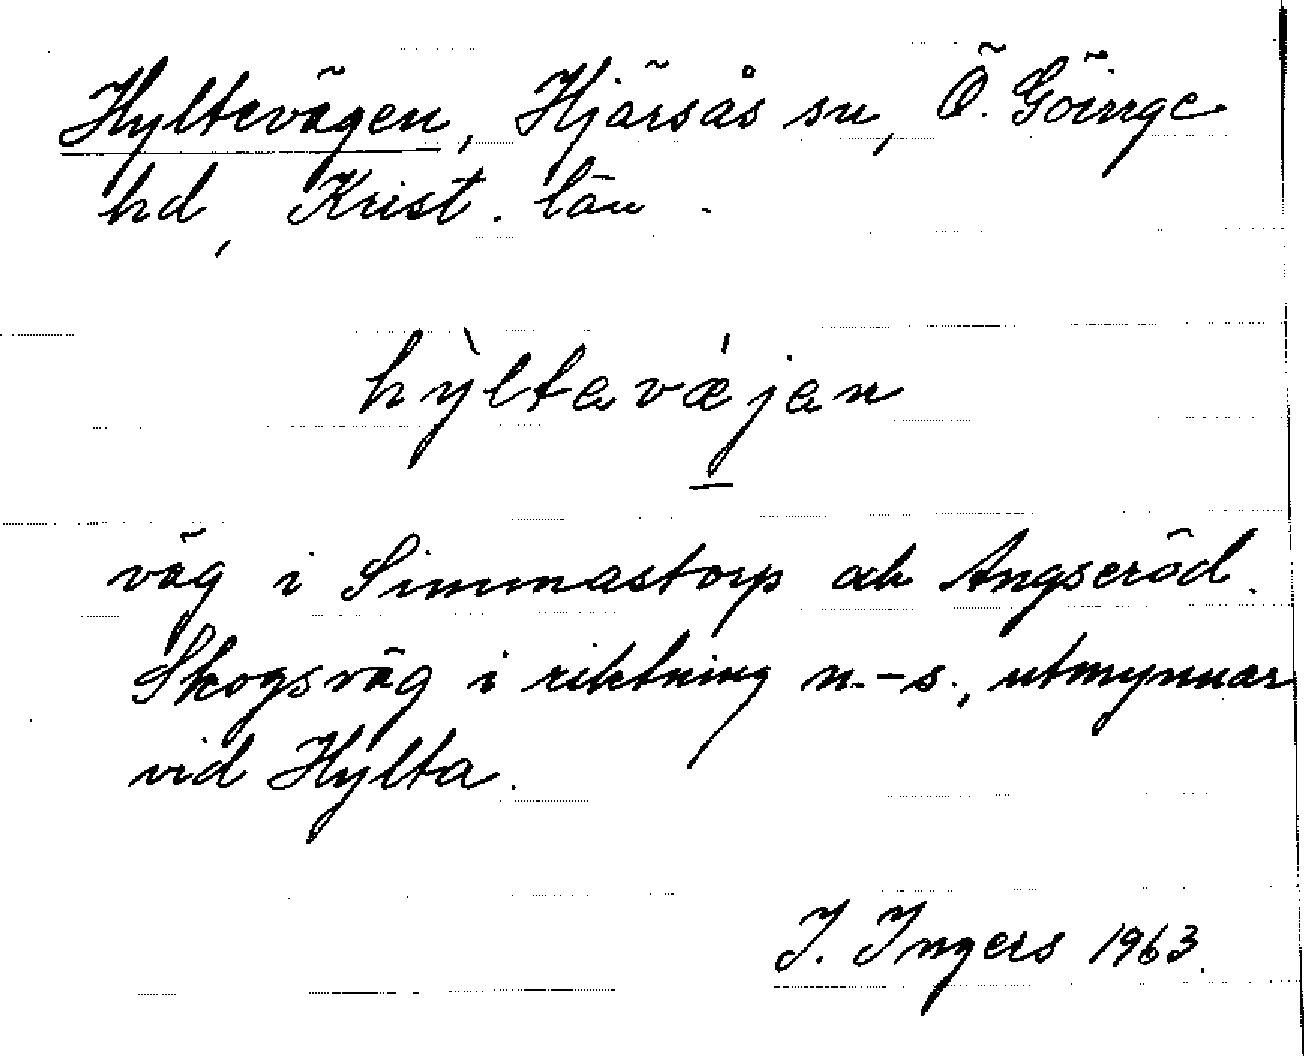 Hyltevägen, Hjärsås sn, Ö. Göinge
hd, Krist. län.
hỳltavǽjan
väg i Simmastorp och Angseröd.
Skogsväg i riktning n.-s., utmynnar
vid Hylta.
I. Ingers 1963.